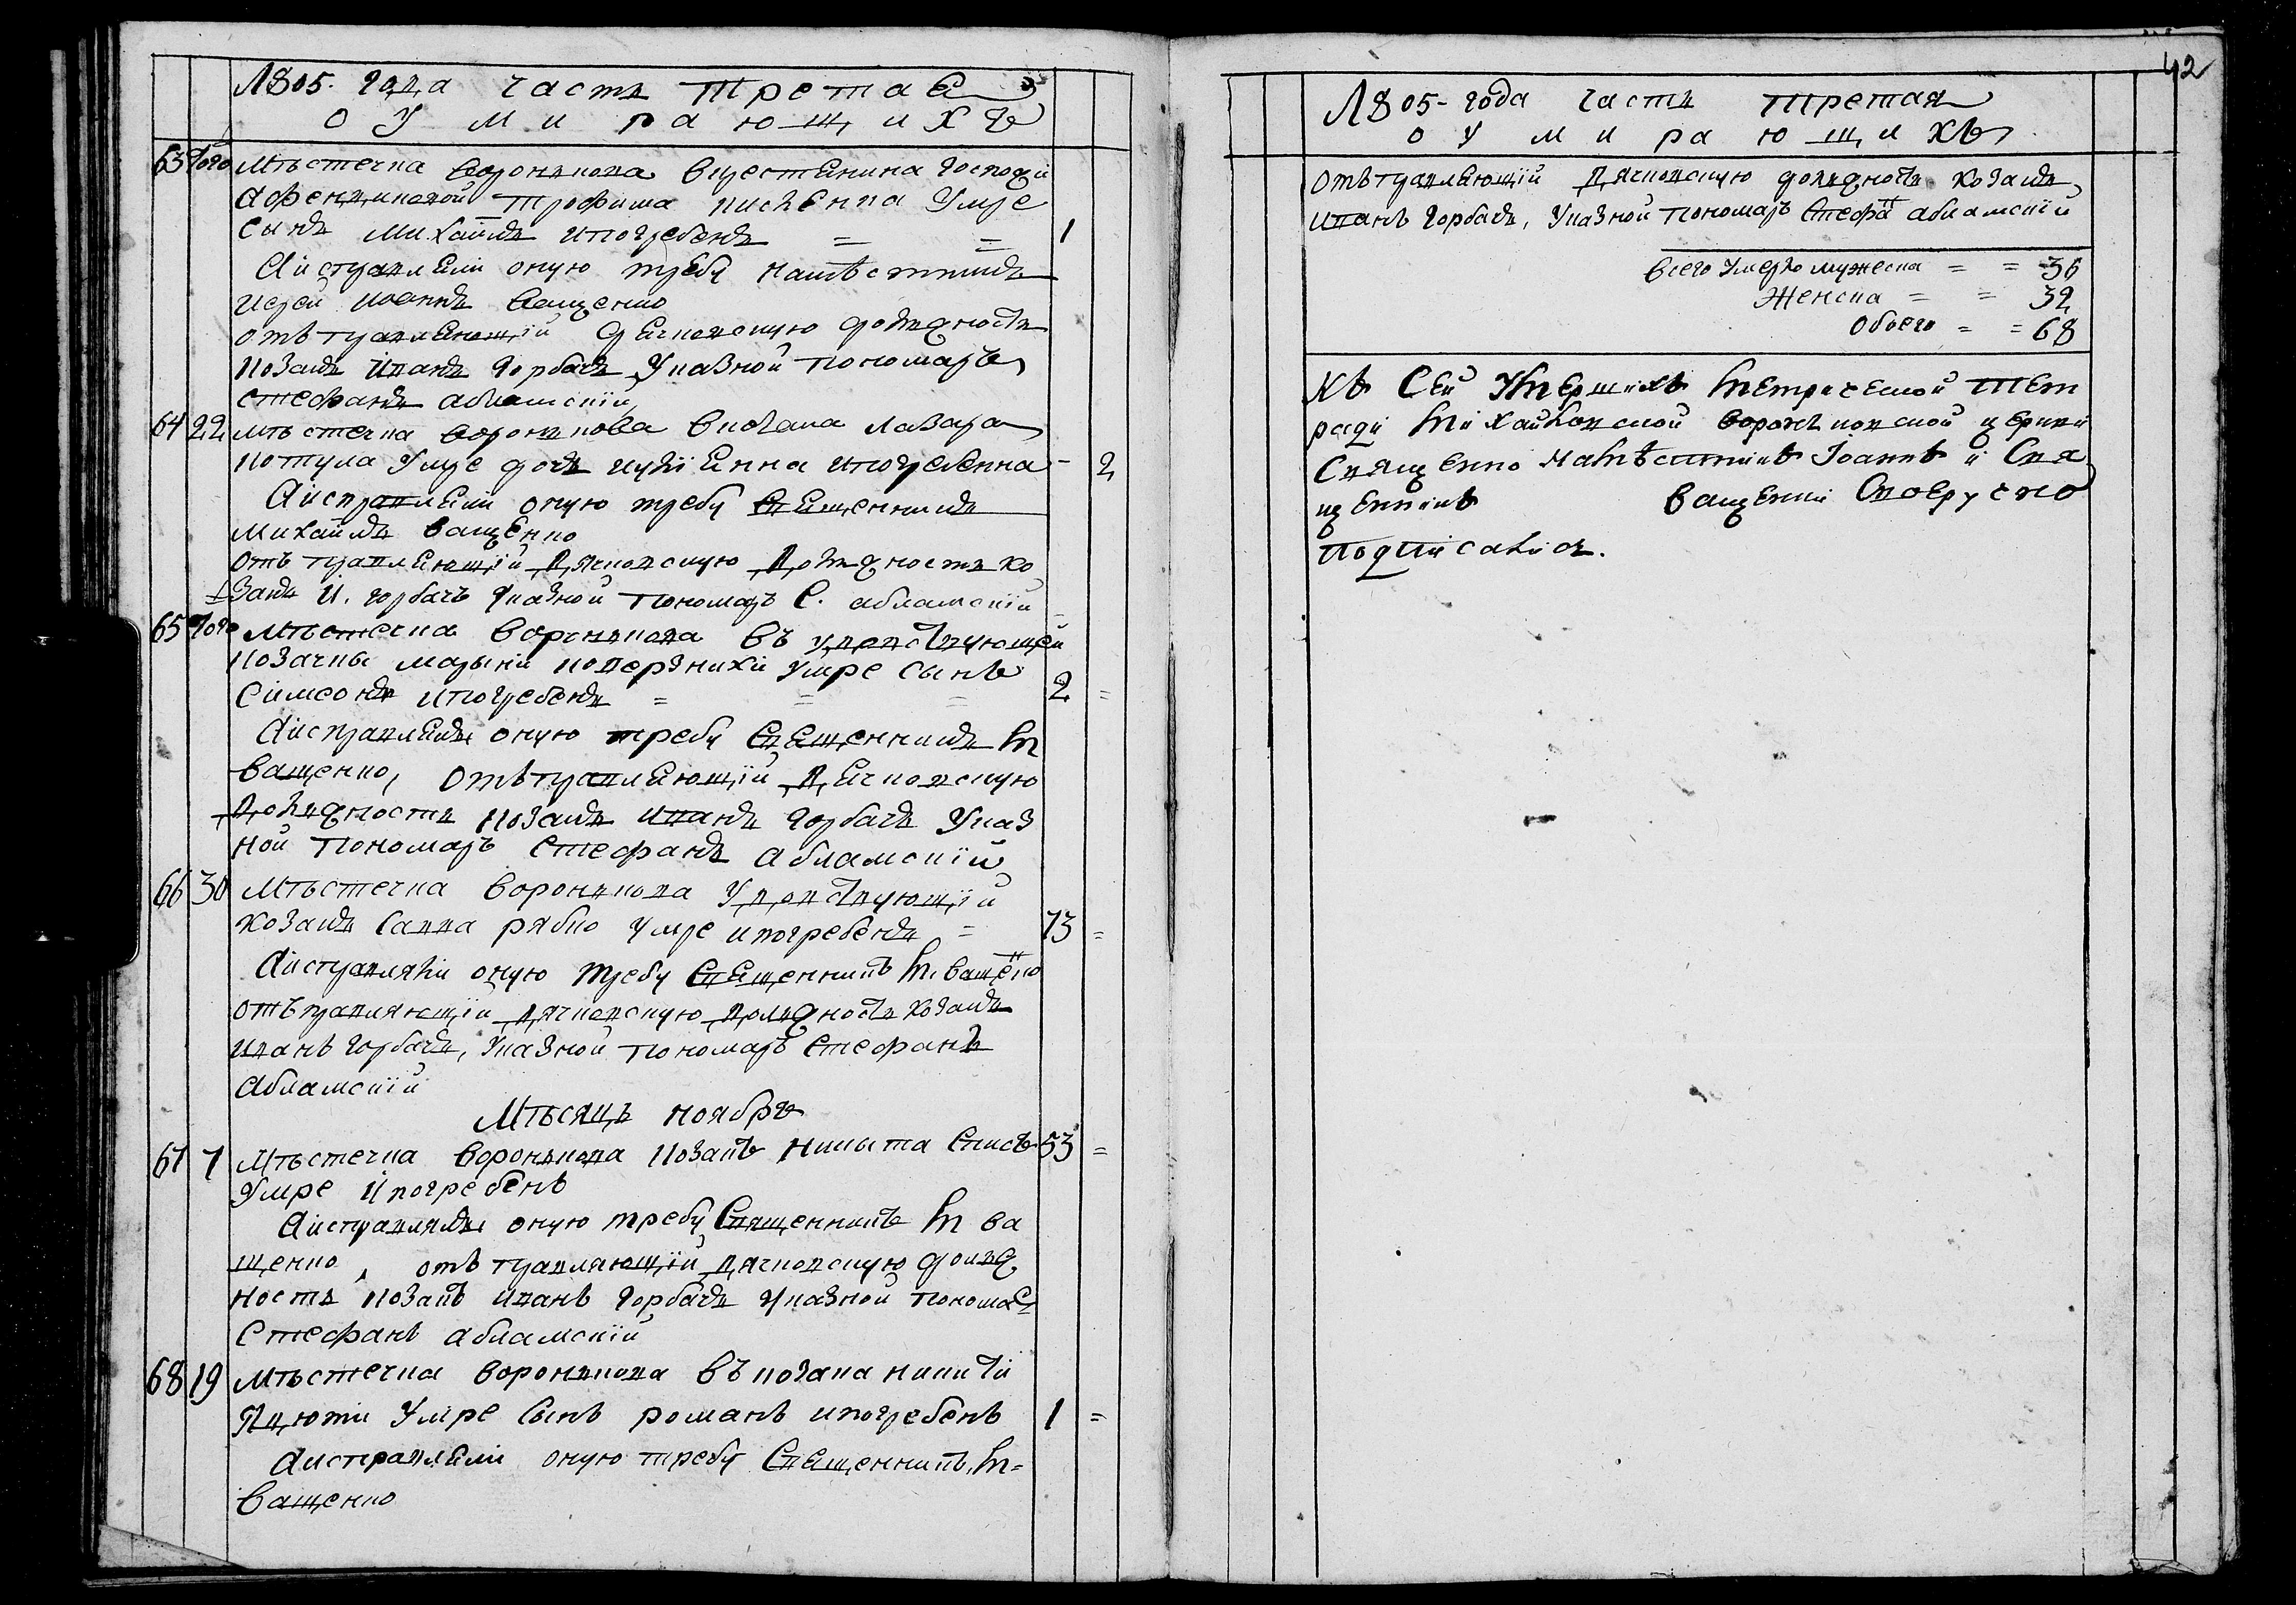 1805. года часть третая
о умирающихъ
63 того Мѣстечка Воронкова вкрестянина Господи
Афендиковой Трофима умре
Сынъ Михаилъ ипогребенъ = = 1
Аисправляли оную требу намѣстникъ
Иерей Иоаннъ Ващенко
отправляющій дячковскую должность
козакъ Иванъ Горбачъ Указной пономаръ
Стефанъ Абламскій
64 22 мѣстечка Воронкова вкозака Лазара
Умре дочъ ипогребенна - 2
Аисправляли оную требу священникъ
Михаилъ Ващенко
отъправляющій дячковскую должность ко
закъ И. Горбачъ Указной пономаръ С. Абламскій
65 того Мѣстечка Воронкова въ удовствующей
козачки Марыни умре сынъ
Симеонъ ипогребенъ = = = 2 =
Аисправлялъ оную требу Священникъ М
Ващенко, отъправляющій дячковскую
должность козакъ Иванъ Горбачъ Указ
ной пономаръ Стефанъ Абламскій
66 30 Мѣстечка Воронкова Удовствующій
козакъ Савва рябко умре ипогребенъ = 73 =
Аисправляли оную требу Священникъ М. Ващенко
отъправляющій дячковскую должность козакъ
Иванъ Горбачъ, Указной пономаръ Стефанъ
Абламскій
Мѣсяцъ ноябръ
67 7 Мѣстечка Воронкова козакъ Никита 53 =
Умре и погребенъ
Аисправлялъ оную требу Священникъ М Ва
щенко, отъправляющій дячковскую долж
ность козакъ Иванъ Горбачъ Указной понома
Стефанъ Абламскій
68 19 Мѣстечка Воронкова въ козака Никити
Яцюти Умре Сынъ романъ ипогребенъ 1 =
Аисправляли оную требу Священникъ М=
Ващенко
42
1805- года часть третая
о умирающихъ
отъправляющій дячковскую должность козакъ
Иванъ Горбачъ, Указной пономаръ Стефанъ Абламскій
всего умерло мужеска = = 36
Женска = = 32
обоего = = 68
Къ Сей Умершихъ Метрической тет
ради Михайловской воронковской церкви
Священно Намѣстникъ Іоаннъ и Свя
щенникъ Ващенки Своеручно
подписались.